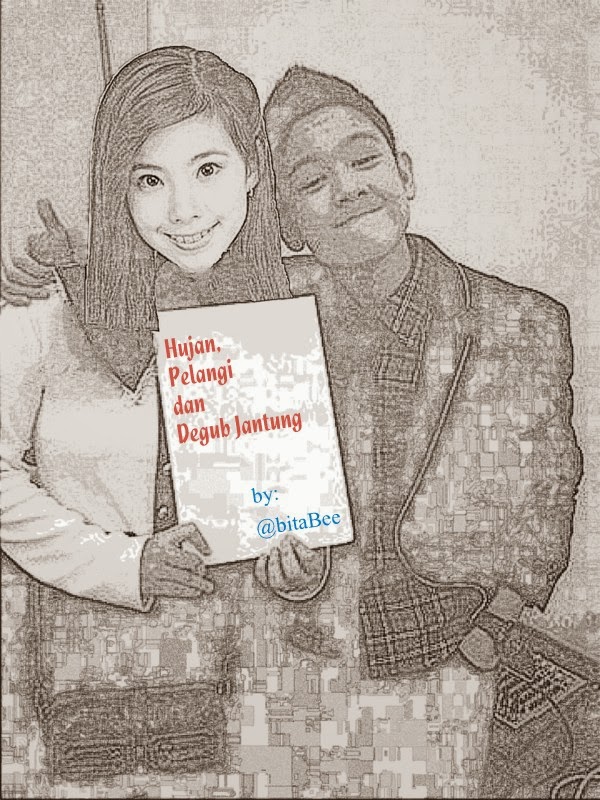 Hujan,
Pelangi
dan
Degub Jantung
by:
@bitaBee